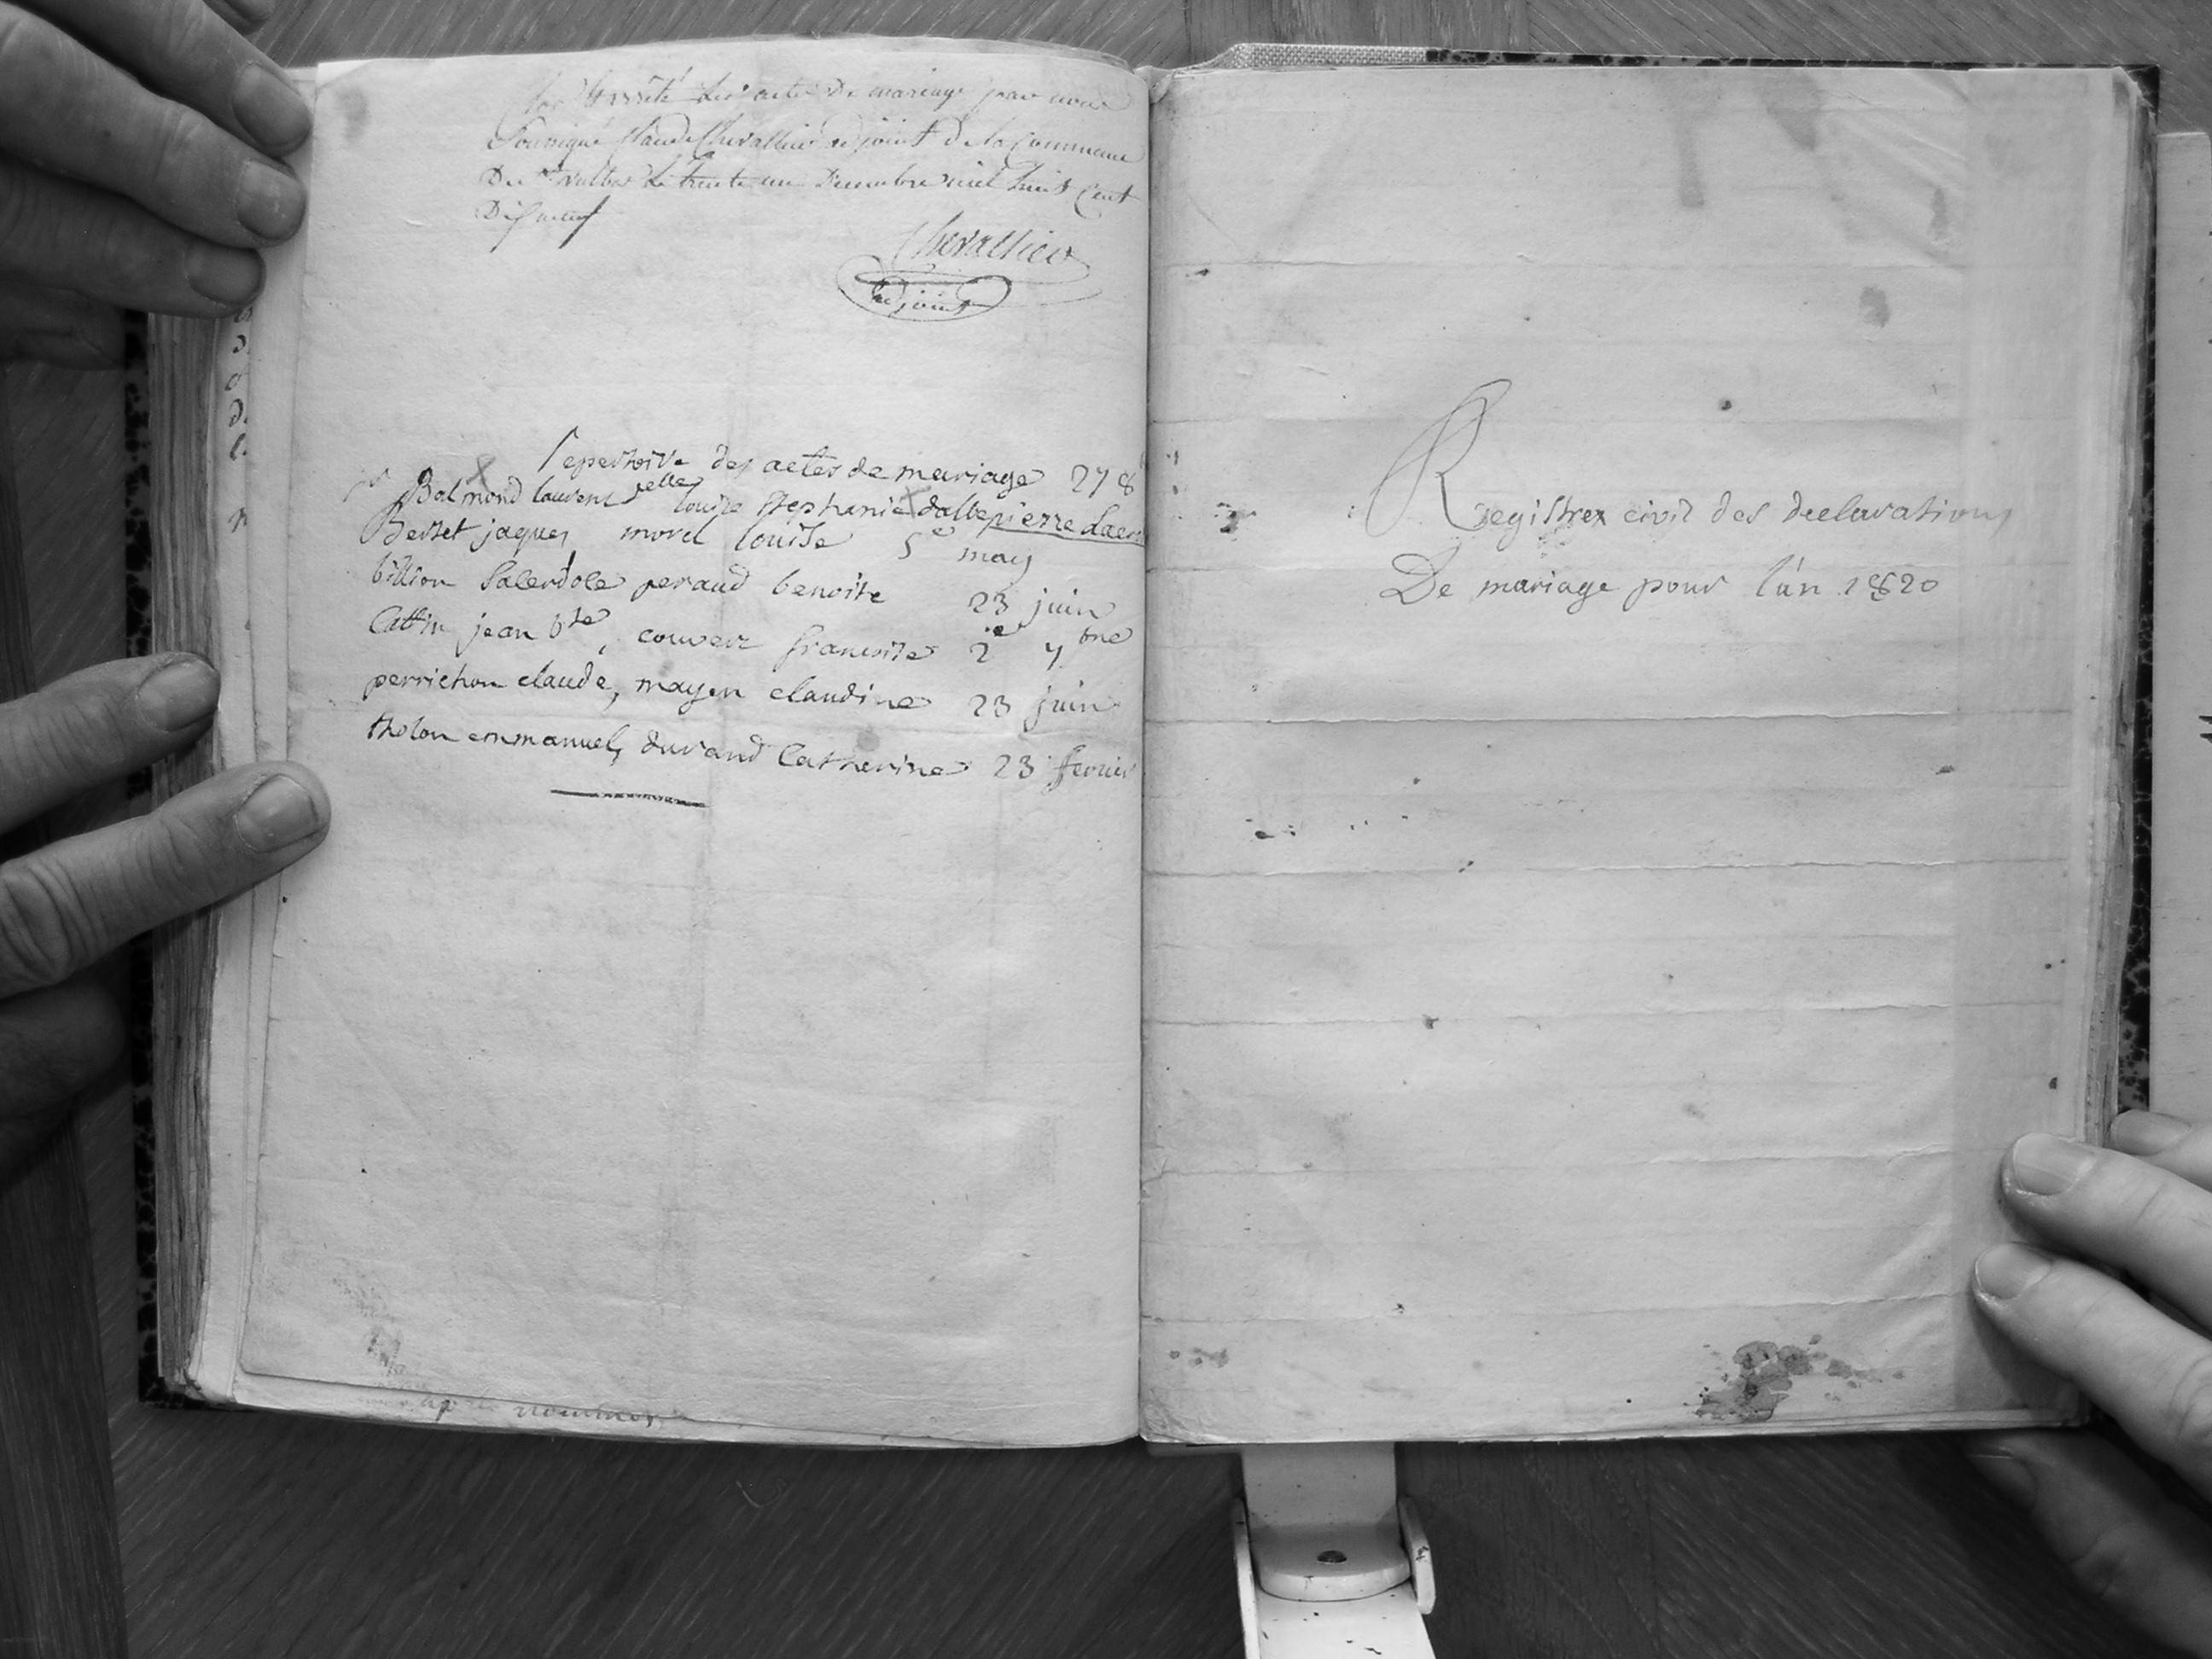 arrêté les actes de mariage par nous
Soussigné Claude Chevallier adjoint de la Commune
De St le trente un Decembre mil huit Cent
Dis neuf
Chevallier
adjoint
repertoire des actes de mariage 27 8
Balmond laurent louise Stephanie dalbepierre
Besset jaques morel louise 5e may
billion peraud benoite 23 juin
Cattin jean bte, couvert francoise 2e 7bre
perrichon claude, mayen claudine 23 juin
tholon emmanuel, durand Catherine 23 fevrier
Registrex civil des declarations
De mariage pour l'an 1820